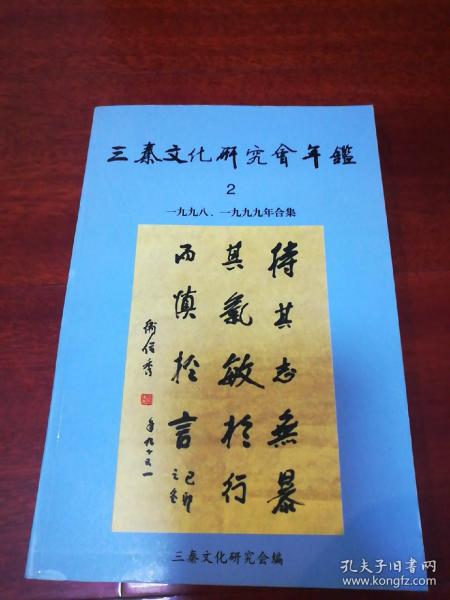 三秦文化研究會年鑑
2
一九九八、一九九九年合集
持其志無暴
其氣敏於行
而慎於言
己卯
之冬
年九十五
三秦文化研究会编
孔夫子旧书网
www.kongfz.com